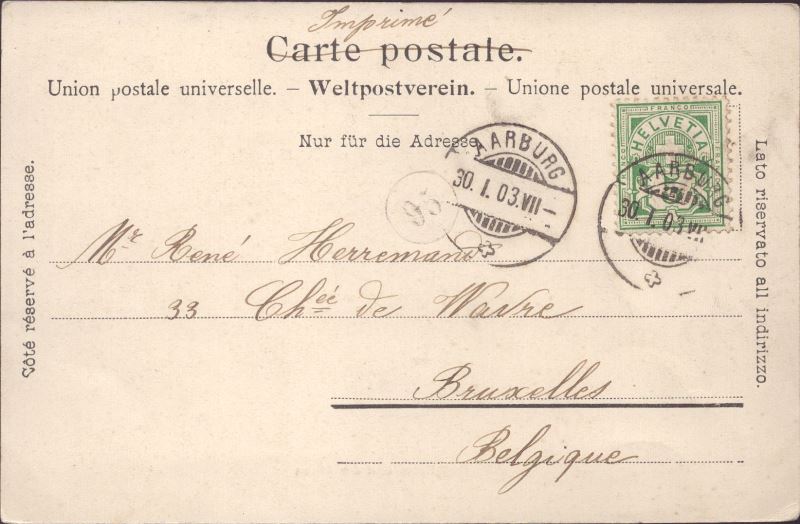 Imprimé
Carte postale.
Union postale universelle. — Weltpostverein. — Unione postale universale.
Nur für die Adresse
FRANCO
HELVETIA
AARBURG
30. I. 03.VII—
AARBURG
30. I. 03.VII
95
Côté réservé à l'adresse.
Lato riservato all indirizzo.
Mr René Herremans
33 Chée de Wavre
Bruxelles
Belgique